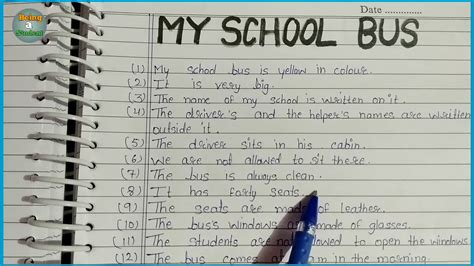 Being
a
Student
Date
MY SCHOOL BUS
(1) My school bus is yellow in colour.
(2) It is very big.
(3) The name of my school is written on it.
(4) The driver's and the helper's names are written
outside it.
(5) The driver sits in his cabin.
(6) We are not allowed to sit there.
(7) The bus is always clean.
(8) It has forty seats.
(9) The seats are made of leather.
(10) The bus's windows are made of glasses.
(11) The students are not allowed to open the windows.
(12) The bus comes at in the morning.